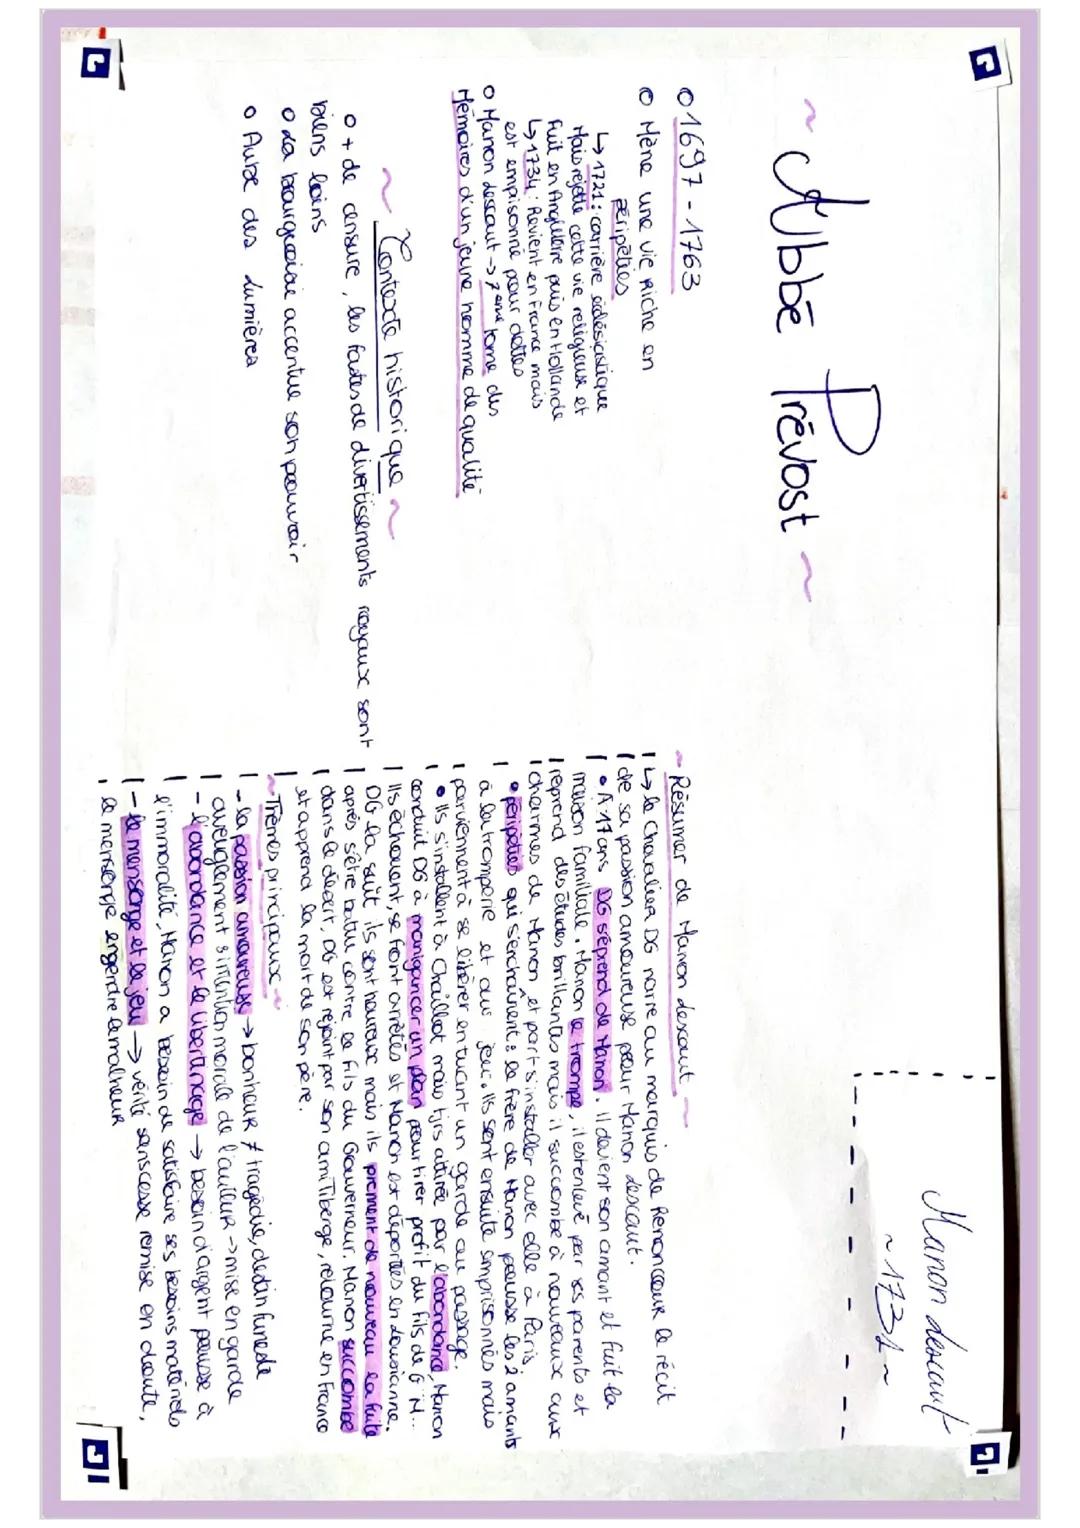 ~ Abbé Prévost ~
Manon Lescaut
~ 1731 ~
o 1697 - 1763
o Mène une vie riche en
péripéties
↳ 1721 : carrière écclésiastique
Mais rejette cette vie religieuse et
Fuit en Angleterre puis en Hollande
↳ 1734 : Revient en France mais
est empisonné pour dettes
o Manon Lescaut → 7ème tome des
Mémoires d'un jeune homme de qualité
~ Contexte historique ~
o + de censure, les fastes de divertissements royaux sont
biens loins
o La bourgeoisie accentue son pouvoir
o Aube des Lumières
~ Résumer de Manon Lescaut ~
↳ Le Chavalier DG narre au marquis de Renoncour le récit
de sa passion amoureuse pour Manon Lescaut.
• A 17 ans DG s'éprend de Manon. Il devient son amant et fuit la
maison familiale. Manon le trompe, il est enlevé par ses parents et
reprend des études brillantes mais il succombe à nouveaux aux
charmes de Manon et part s'installer avec elle à Paris
• péripéties qui s'enchaînent : le frère de Manon pousse les 2 amants
à la tromperie et au jeu. Ils sont ensuite emprisonnés mais
parviennent à se libérer en tuant un garde au passage.
• Ils s'installent à Chaillot mais tjrs attirée par l'abondance, Manon
conduit DG à manigancer un plan pour tirer profit du fils de G M..
Ils échouent, se font arrêtés et Manon est déportés en Louisianne.
DG la suit ils sont heureux mais ils prennent de nouveau la fuite
après s'être battu contre le fils du Gouverneur. Manon succombe
dans le désert, DG est rejoint par son ami Tiberge, retourne en France
et apprend la mort de son père.
~ Thèmes principaux ~
- la passion amoureuse → bonheur ≠ tragédie, destin funeste
aveuglement s intention morale de l'auteur → mise en garde
- l'abondance et le libertinage → besoin d'argent pousse à
l'immoralité, Manon a besoin de satisfaire ses besoins matériels
- le mensonge et le jeu → vérité sans cesse remise en doute,
le mensonge engendre le malheur